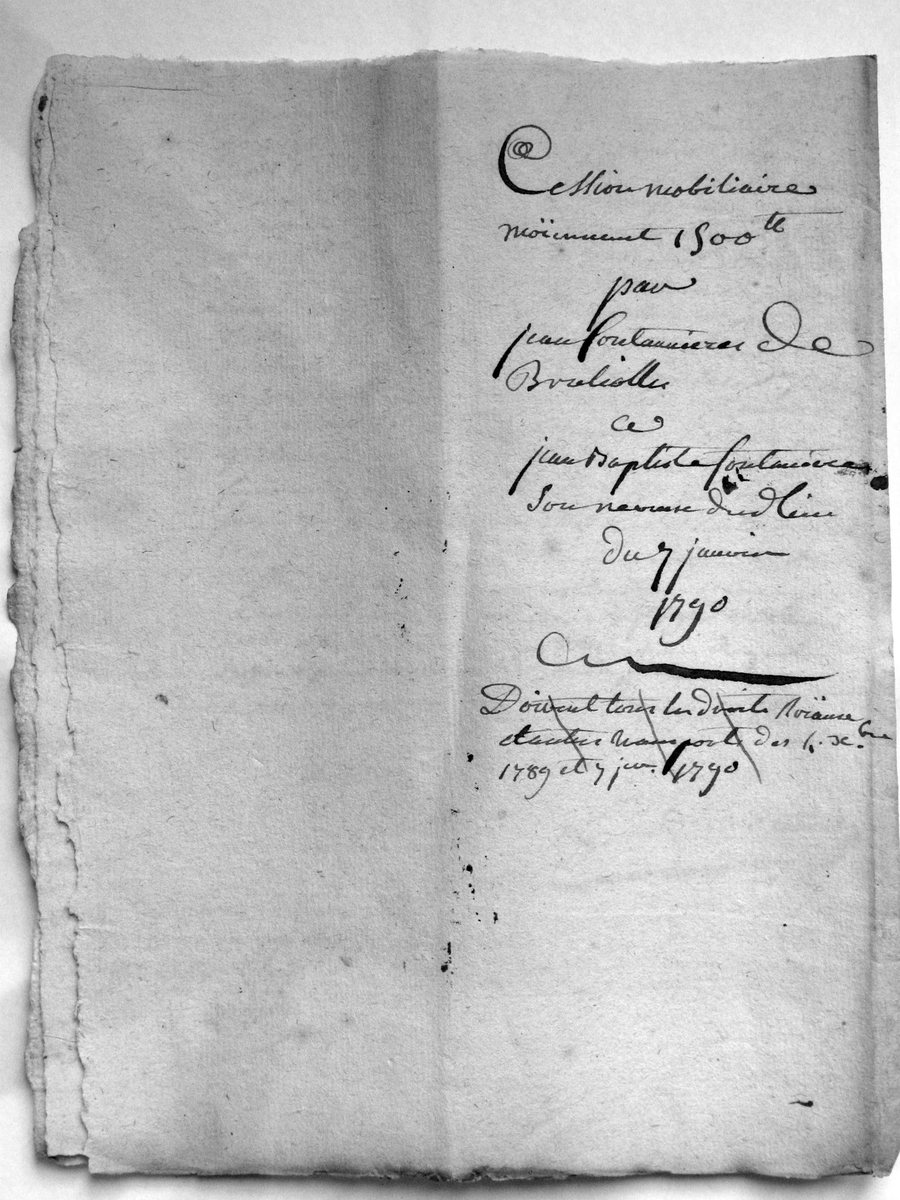 Cession mobiliaire
moïennent 1500 tt
par
jean fontannieres De
Broliolles
a
jean Baptiste fontanieres
Son neveu dud lieu
du 7 janvier
1790
Doivent tous les droits
et autres transports des 4. xbre
1789 et 7 jer. 1790